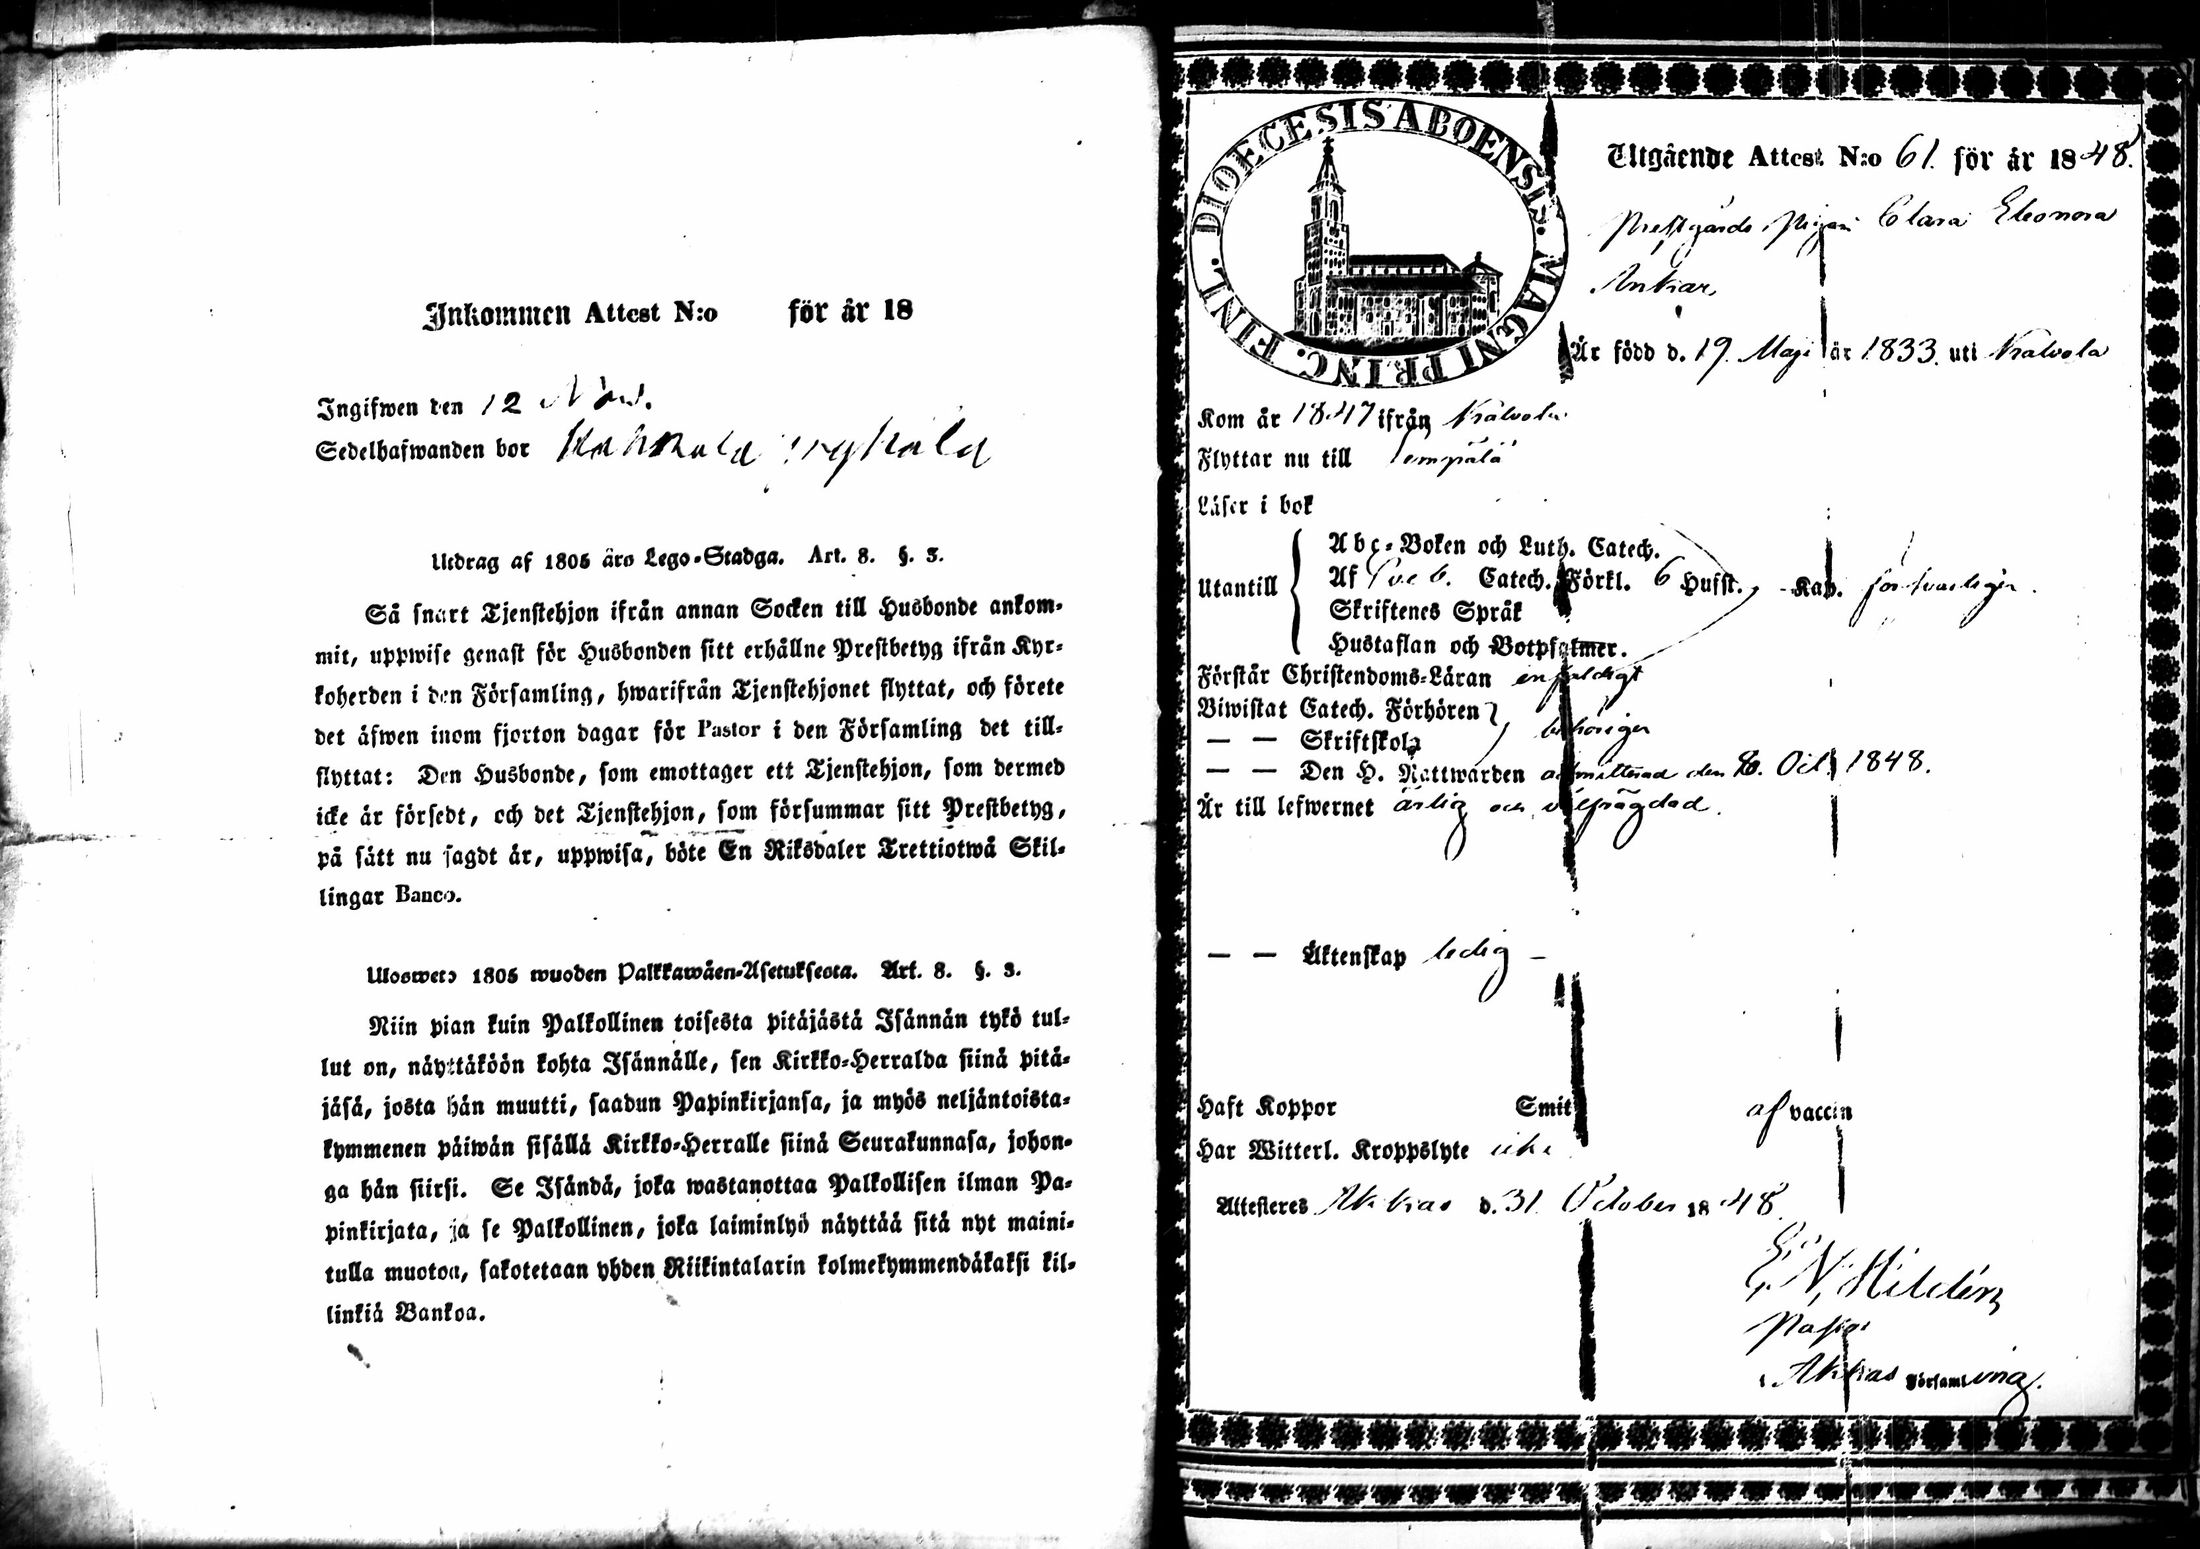 Inkommen Attest N:o för år 18
Ingifwen den 12 Nov.
Sedelhafwanden bor
Utdrag af 1805 års Lego-Stadga. Art. 8. §. 3.
Så snart Tjenstehjon ifrån annan Socken till Husbonde ankom-
mit, uppwise genast för Husbonden sitt erhållne Prestbetyg ifrån Kyr-
koherden i den Församling, hwarifrån Tjenstehjonet flyttat, och förete
det äfwen inom fjorton dagar för Pastor i den Församling det till-
flyttat: Den Husbonde, som emottager ett Tjenstehjon, som dermed
icke är försedt, och det Tjenstehjon, som försummar sitt Prestbetyg,
på sätt nu sagdt är, uppwisa, böte En Riksdaler Trettiotwå Skil-
lingar Banco.
Uloswets 1805 wuoden Palkkawäen-Asetuksesta. Art. 8. §. 3.
Niin pian kuin Palkollinen toisesta pitäjästä Isännän tykö tul-
lut on, näyttäköön kohta Isännälle, sen Kirkko-Herralda siinä pitä-
jäsä, josta hän muutti, saadun Papinkirjansa, ja myös neljäntoista-
kymmenen päiwän sisällä Kirkko-Herralle siinä Seurakunnasa, johon-
ga hän siirsi. Se Isändä, joka wastanottaa Palkollisen ilman Pa-
pinkirjata, ja se Palkollinen, joka laiminlyö näyttää sitä nyt maini-
tulla muotoa, sakotetaan yhden Riikintalarin kolmekymmendäkaksi kil-
linkiä Bankoa.
DIOECESIS ABOENSIS. MAGNI PRINC. FINL.
Utgående Attest N:o 61. för år 1848.
Prestgårds pigan Clara Eleonora
Ankar,
Är född d. 19. Maji år 1833. uti Kalvola
Kom år 1847 ifrån Kalvola
Flyttar nu till Lempälä
Läser i bok
Utantill
Abc-Boken och Luth. Catech.
Af Sveb. Catech. Förkl. 6 Hufst. Kap. försvarligen.
Skriftenes Språk
Hustaflan och Botpsalmer.
Förstår Christendoms-Läran enfaldigt
Biwistat Catech. Förhören
— — Skriftskola behörigen
— — Den H. Nattwarden admitterad den 8. Oct. 1848.
Är till lefwernet ärlig och välfrägdad.
— — Äktenskap ledig —
Haft Koppor Smit af vaccin
Har Witterl. Kroppslyte icke
Attesteres Akkas d. 31. October 1848.
E. N. Hildén
Pastor
i Akkas Församling.